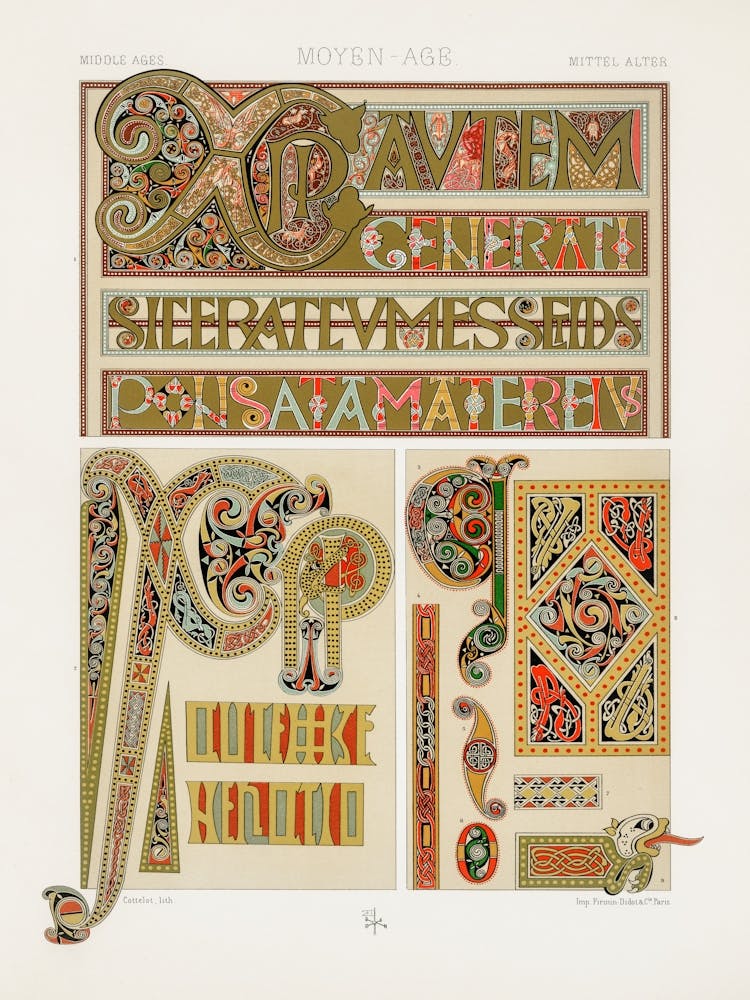 MIDDLE AGES.
MOYEN-AGE.
MITTEL ALTER
XPI AVTEM
GENERATI
SICERATCVMESSETDIS
PONSATAMATEREIVS
1
2
XP
3
4
5
6
7
8
9
Cottelot, lith.
Imp. Firmin-Didot & Cie. Paris.